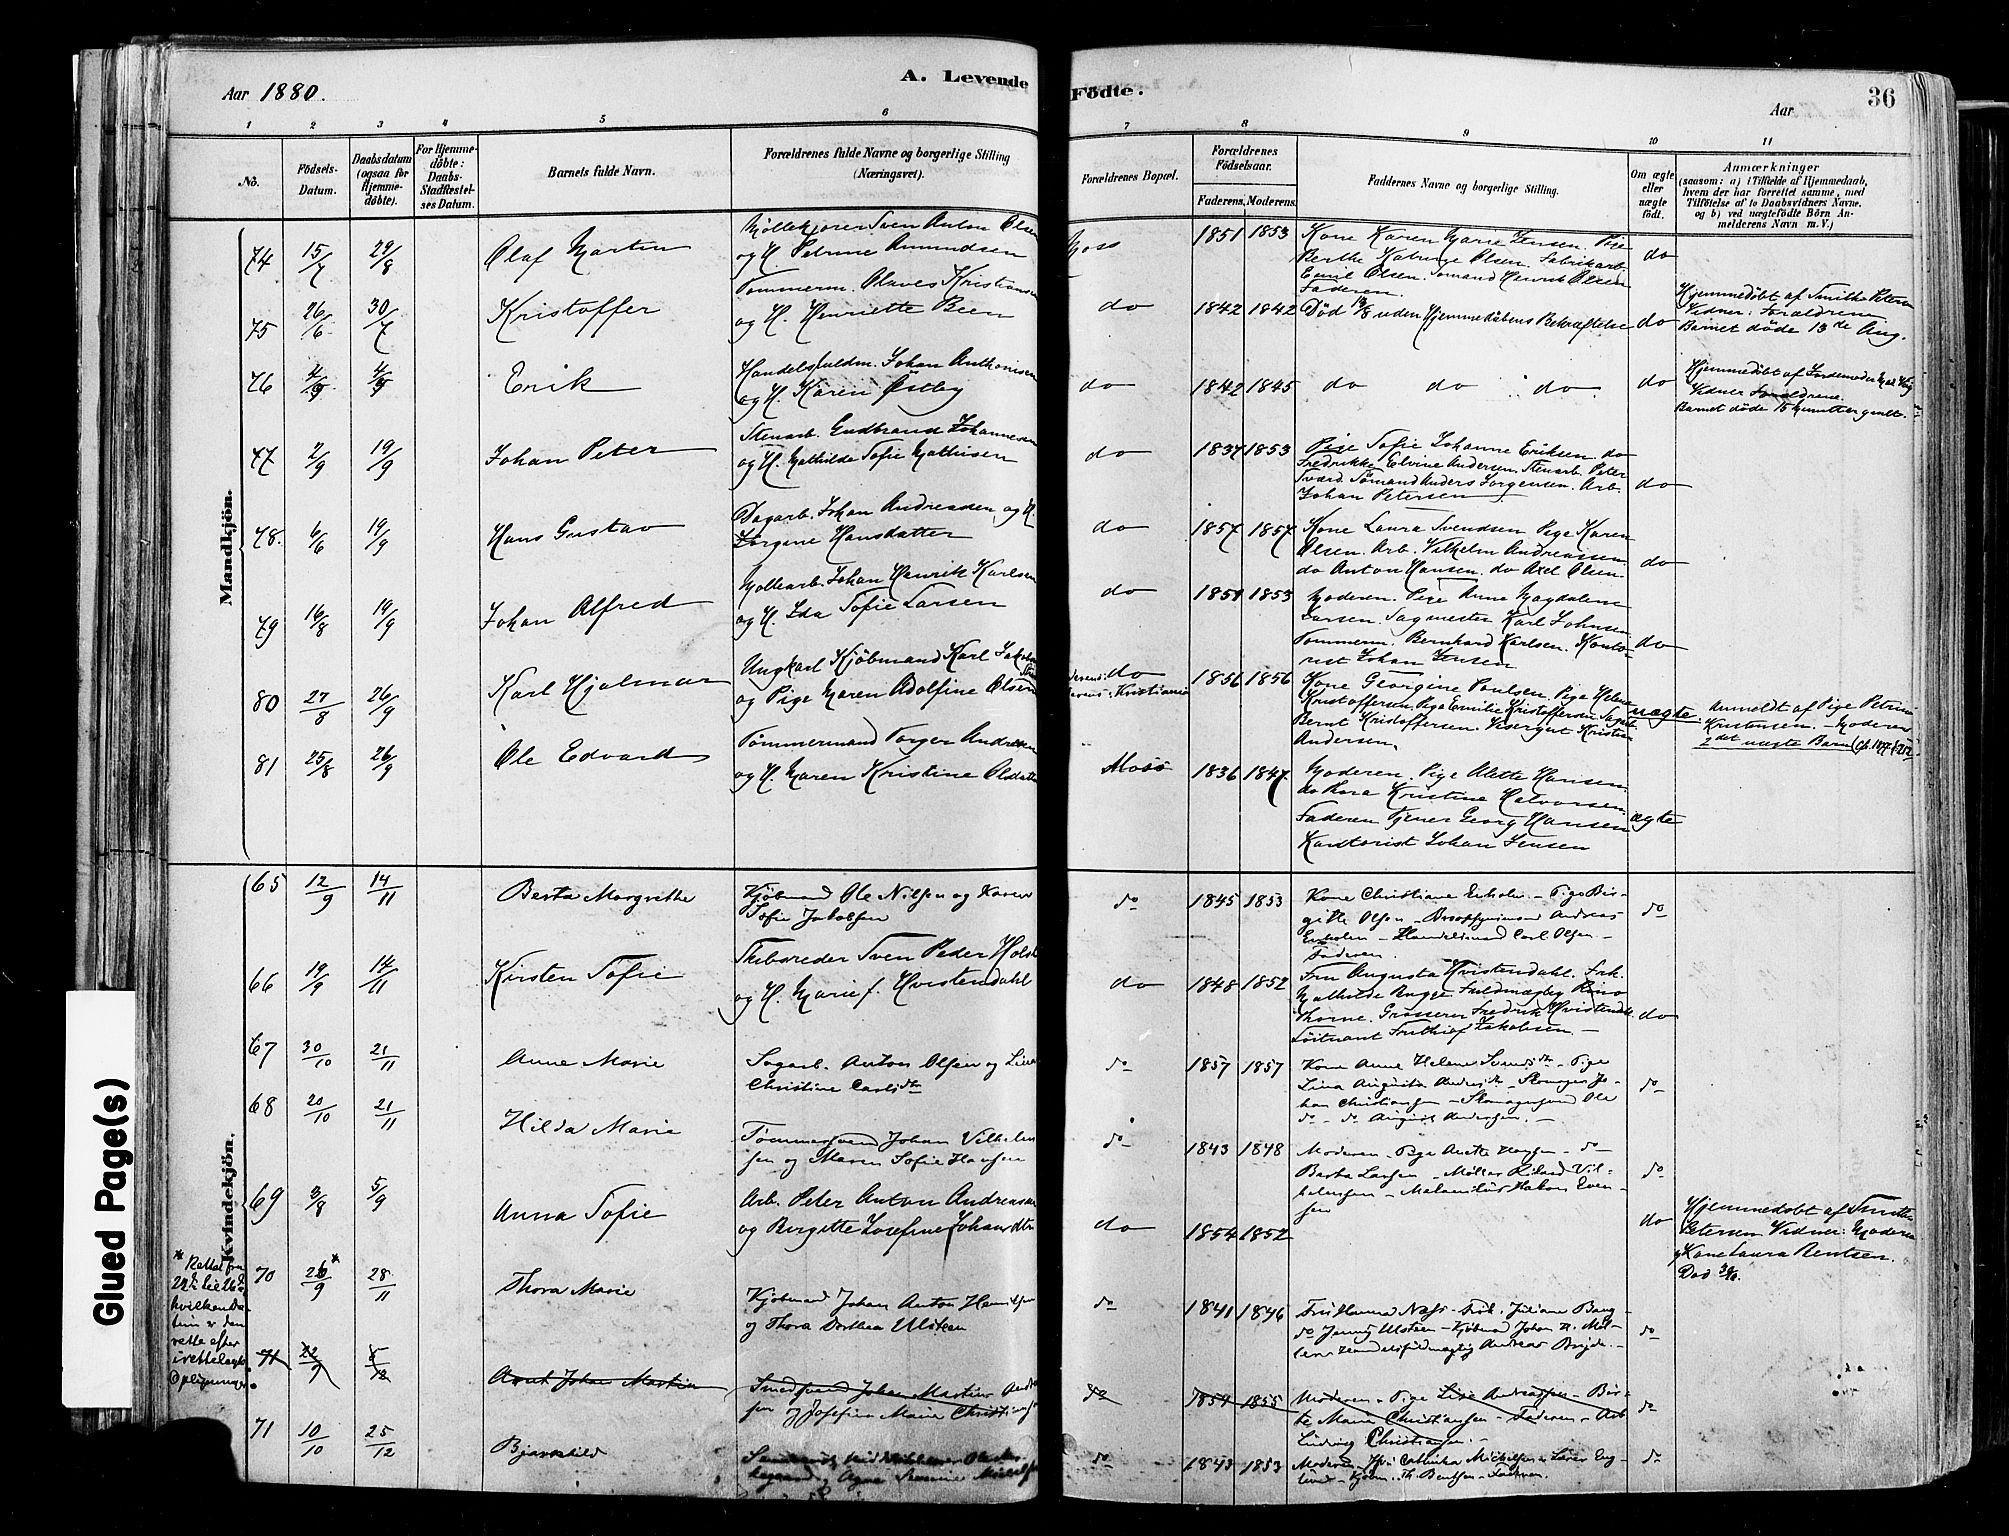 Aar 1880.
A. Levende
Födte.
Aar
36
1 2 3 4 5 6 7 8 9 10 11
No.
Födsels-
Datum.
Daabsdatum
(ogsaa för
Hjemme-
döbte).
For Hjemme-
döbte:
Daabs-
Stadfæstel-
ses Datum.
Barnets fulde Navn.
Forældrenes fulde Navne og borgerlige Stilling
(Næringsvei).
Forældrenes Bopæl.
Forældrenes
Födselsaar.
Faderens. Moderens.
Faddernes Navne og borgerlige Stilling.
Om ægte
eller
uægte
födt.
Anmærkninger
(saasom: a) i Tilfælde af Hjemmedaab,
hvem der har forrettet samme, med
Tilföielse af to Daabsvidners Navne.
og b) ved uægtefödte Börn An-
melderens Navn m.V.)
Mandkjön.
74 15/7 29/8 Olaf Martin
Møllekjører Sven Anton Olsen
og H. Petrine Amundsen
Moss 1851 1853
Kone Karen Marie Jensen. Pige
Berthe Katrine Olsen. Fabrikarb.
Emil Olsen. Sømand Henrik Olsen
Faderen.
do
75 26/6 30/7 Kristoffer
Tømmerm. Olaves Kristiansen
og H. Henriette Been
do 1842 1842
Død 13/8 uden Hjemmedaabens Bekræftelse
do
Hjemmedøbt af Smithe Petersen
Vidner: Forældrene
Barnet døde 13de Aug.
76 4/9 4/9 Erik
Handelsfuldm. Johan Anthonisen
og H. Karen Østby
do 1842 1845 do do do do
Hjemmedøbt af
Vidner Forældrene.
Barnet døde 15 Minutter gmlt.
77 2/9 19/9 Johan Peter
Stenarb. Gudbrand Johannesen
og H. Mathilde Sofie Mathisen
do 1837 1853
Pige Sofie Johanne Eriksen. do
Fredrikke Elvine Andersen. Stenarb. Peter
Sværd. Sømand Anders Jørgensen. Arb.
Johan Petersen
do
78. 6/6 19/9 Hans Gustav
Dagarb. Johan Andreasen og H.
Jørgine Hansdatter
do 1857 1857
Kone Laura Svendsen. Pige Karen
Olsen. Arb. Vilhelm Andreassen
do Anton Hansen. do Axel Olsen.
do
79 16/8 19/9 Johan Alfred
Møllearb. Johan Henrik Karlsen
og H. Ida Sofie Larsen
do 1851 1853
Moderen. Pige Anne Magdalene
Larsen. Sagmester Karl Johnsen
Tømmerm. Bernhard Karlsen. Konto-
rist Johan Jensen
do
80 27/8 26/9 Karl Hjalmar
Ungkarl Kjøbmand Karl
og Pige Maren Adolfine Olsen
do
Kristiania
1856 1856
Kone Georgine Poulsen. Pige Helene
Kristoffersen. Pige Emilie Kristoffersen
Bernt Kristoffersen. Visergut Kristian
Andersen.
uægte.
Anmeldt af Pige Petrine
Kristensen. Moderens
2det uægte Barn
81 25/8 26/9 Ole Edvard
Tømmermand Torger Andersen
og H. Maren Kristine Olsdatter
Moss 1836 1847
Moderen. Pige Alette Hansen
do Thora Kristine Halvorsen
Faderen Tjener Georg Hansen
Kontorist Johan Jensen
ægte
Kvindekjön.
65 12/9 14/11 Berta Margrethe
Kjøbmand Ole Nilsen og Karen
Sofie Jakobsen
do 1845 1853
Kone Christiane Enholm - Pige Bir-
gitte Olsen - Andreas
Enholm - Handelsmand Carl Olsen -
Faderen.
do
66 19/9 14/11 Kirsten Sofie
Skibsreder Sven Peder Holst
og H. Marie f. Hvistendahl
do 1848 1852
Fru Augusta Hvistendahl. Frk.
Mathilde Bugge. Fuldmægtig
Thorne. Grosserer Fredrik Hvistendahl
Løitnant Frithjof Jakobsen -
do
67 30/10 21/11 Anne Marie
Sagarb. Anton Olsen og Lina
Christine Carlsdtr
do 1857 1857
Kone Anne Helene Svendsdtr - Pige
Lina Augusta - Jo-
han Christiansen - Ole
do - do August Andersen. -
do
68 20/10 21/11 Hilda Marie
Tømmersvend Johan Vilhelm
sen og Maren Sofie Hansen
do 1843 1848
Moderen - Pige Anette - do
Berta Larsen - Møller Vil-
helmsen - Hakon Even-
sen
do
69 3/8 5/9 Anna Sofie
Arb. Peter Anton Andreasen
og Birgitte Josefine Johansdtr
do 1854 1852
do
Hjemmedøbt af Smithe
Petersen Vidner: Moderen
og Kone Laura Bentsen.
Død 30/8.
70 26*/9 28/11 Thora Marie
Kjøbmand Johan Anton Henriksen
og Thora Dorthea Ulsteen
do 1841 1846
Fru Hanna Næss - Frk. Juliane Bang -
do Jenny Ulsteen - Kjøbmd Johan A. Møl-
ler - Handelsfuldmægtig Andreas Bryde. -
do
* Rettet fra
hvilken Da-
tum er den
rette efter
irettelagte
Oplysninger.
71 22/9 5/12 Arnt Johan Martin
Smedsvend Johan Martin
sen og Josefine Marie Christiansen
do 1854 1855
Moderen - Pige Lise Andreassen - Ber-
te Marie Christiansen - Faderen - Arb
Ludvig Christiansen. -
do
71 10/10 25/12 Bjarnhild
og Agna Michelsen
do 1843 1853
Moderen - Cathinka Michelsen - Lærer Eng-
Kjøbm. Th. Bentsen - Faderen.
do
Glued Page(s)